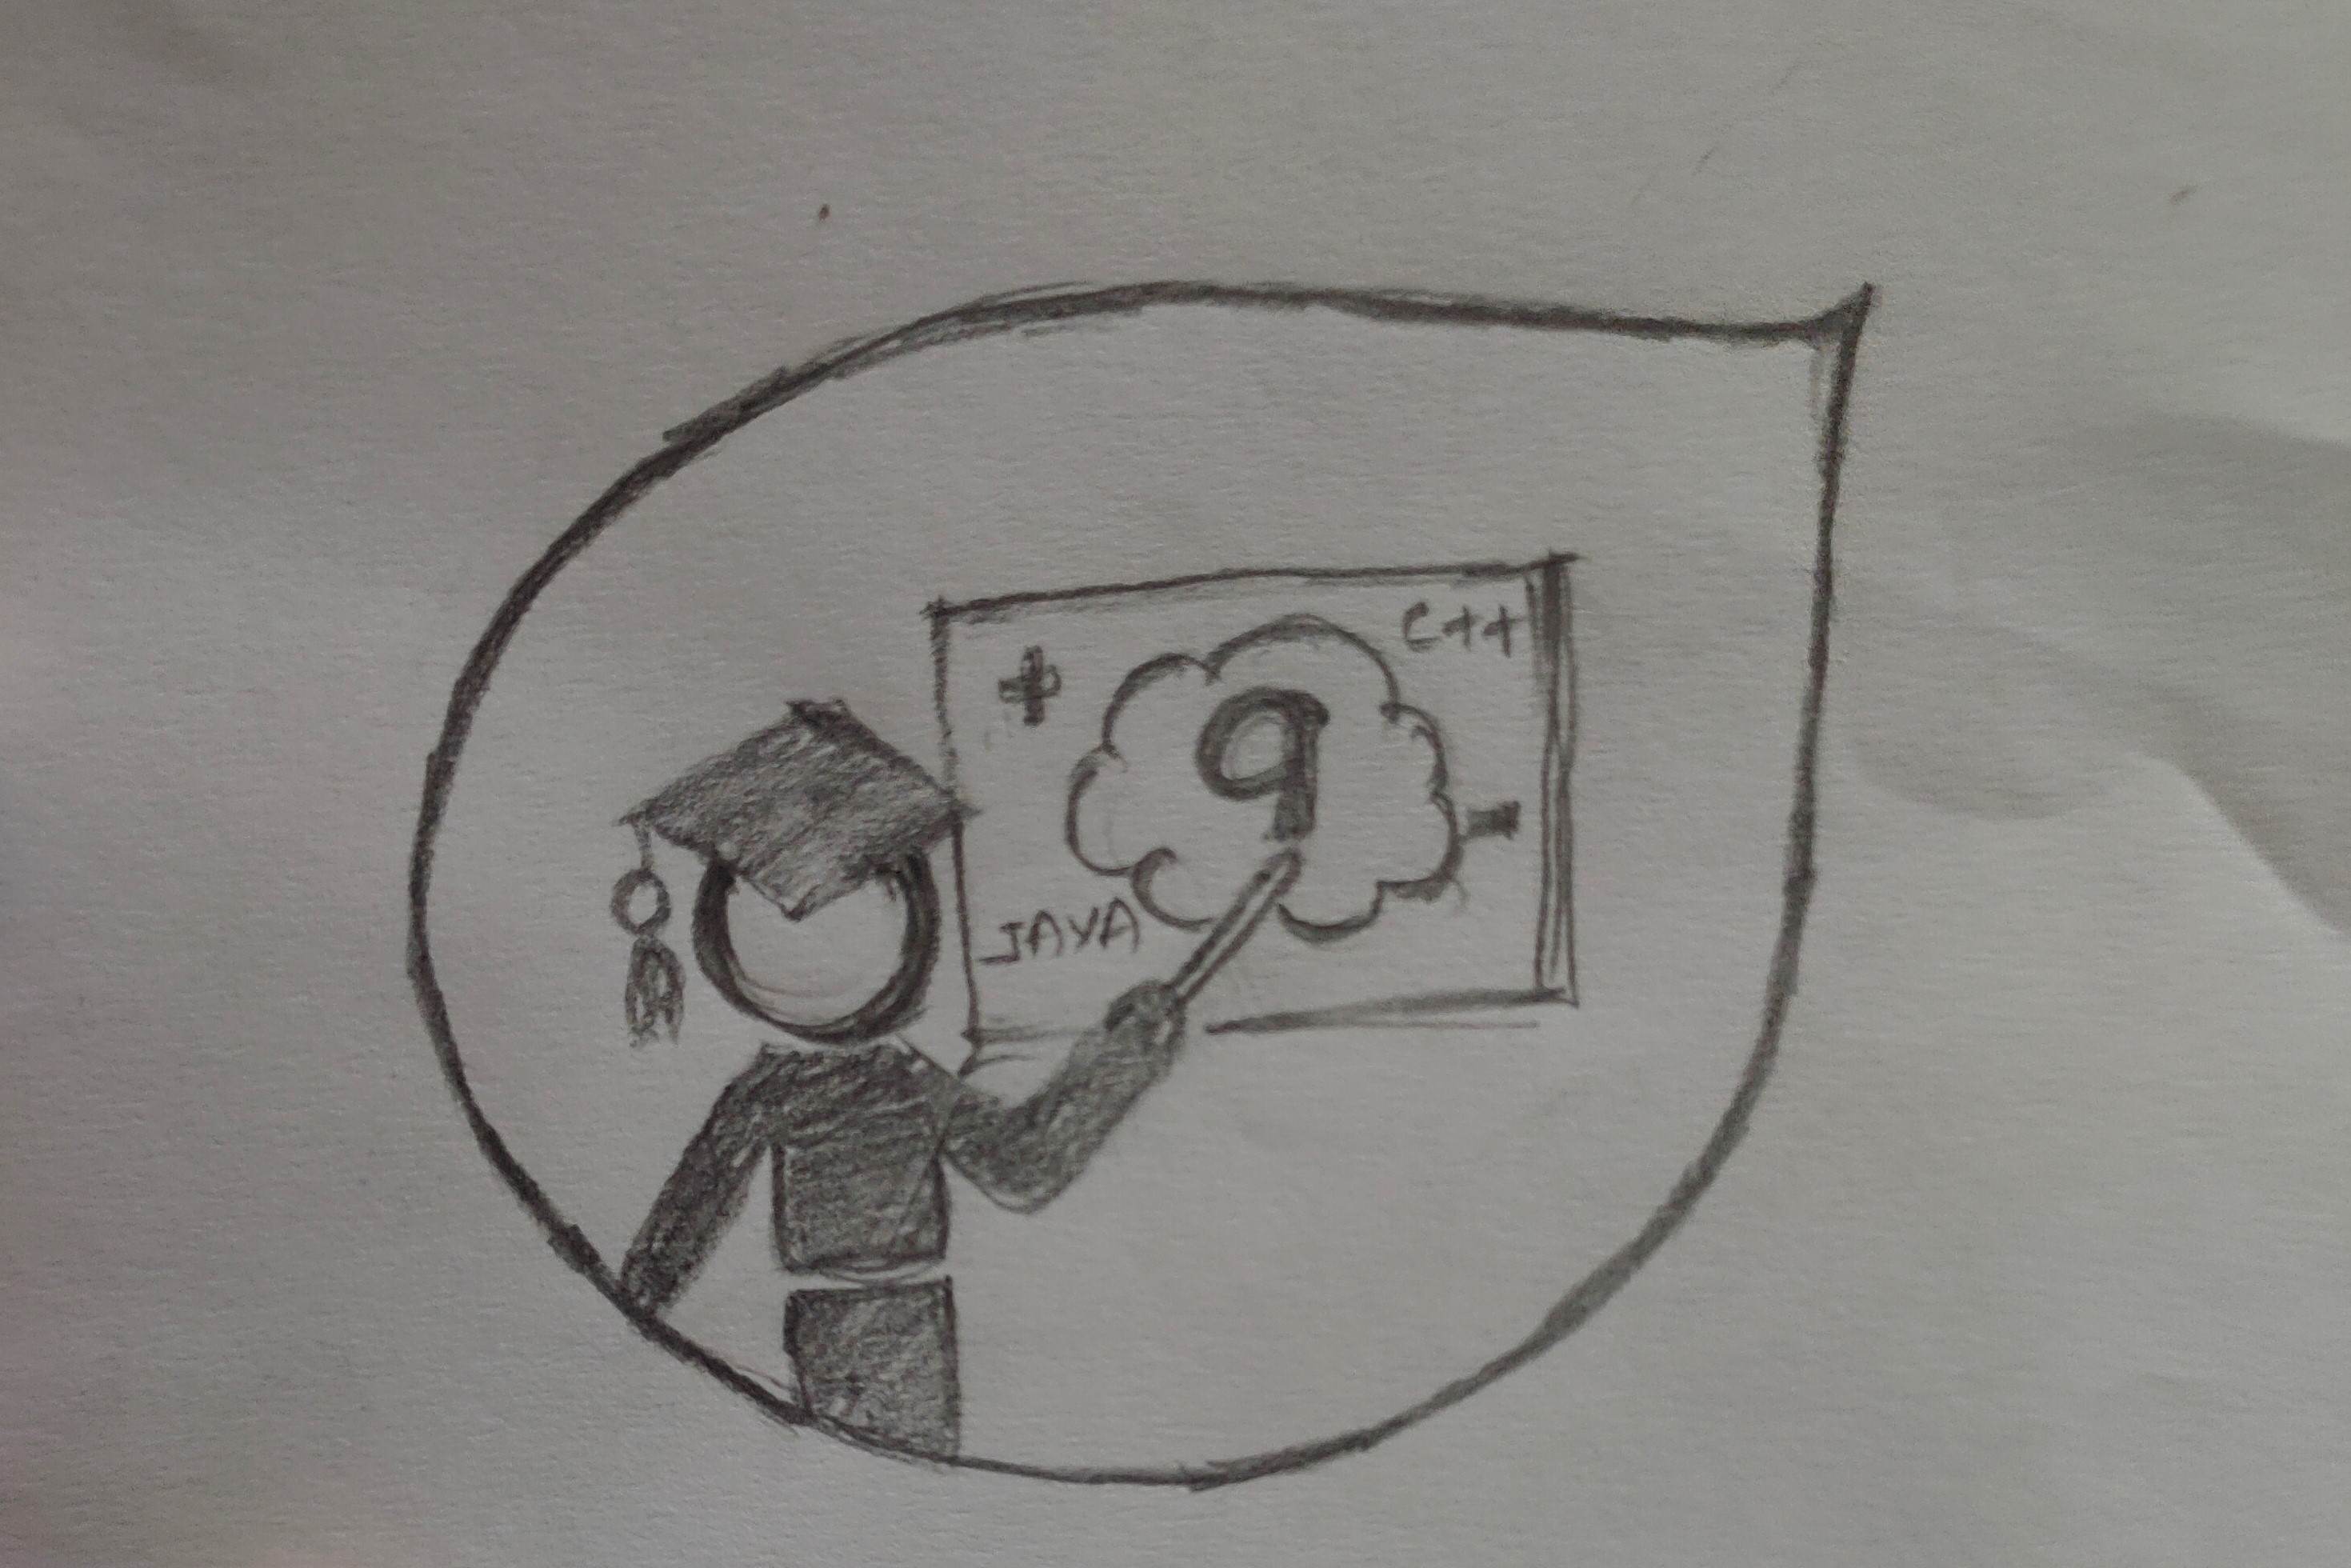 C++
+
9
-
JAVA